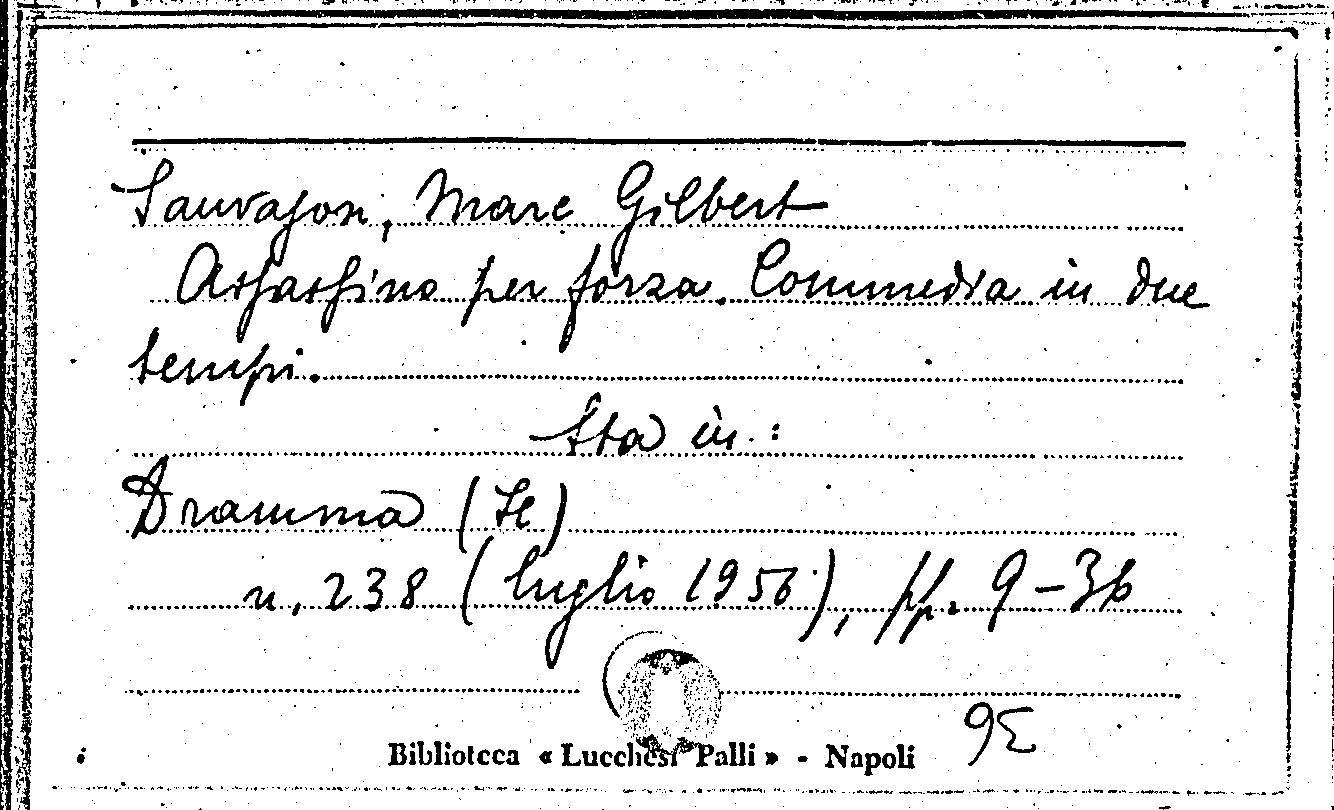 Sauvajon, Marc Gilbert
Assassino per forza. Commedia in due
tempi.
Sta in:
Dramma (Il)
n, 238 (luglio 1956), pp. 9-36
Biblioteca « Lucchesi Palli » - Napoli